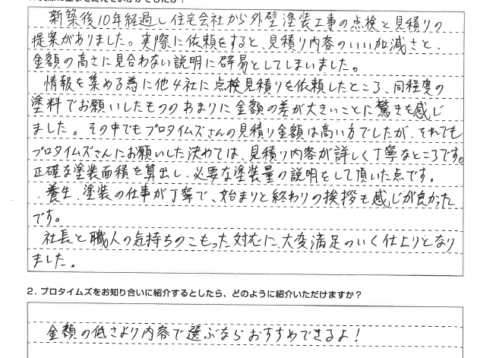 新築後10年経過し住宅会社から外壁塗装工事の点検と見積りの
提案がありました。実際に依頼をすると、見積り内容のいい加減さと、
金額の高さに見合わない説明に辟易としてしまいました。
情報を集める為に他4社に点検見積りを依頼したところ、同程度の
塗料でお願いしたもののあまりに金額の差が大きいことに驚きを感じ
ました。その中でもプロタイムズさんの見積り金額は高い方でしたが、それでも
プロタイムズさんにお願いした決めては、見積り内容が詳しく丁寧なところです。
正確な塗装面積を算出し、必要な塗装量の説明をして頂いた点です。
養生、塗装の仕事が丁寧で、始まりと終わりの挨拶も感じが良かった
です。
社長と職人の気持ちのこもった対応に、大変満足のいく仕上りとなり
ました。
2. プロタイムズをお知り合いに紹介するとしたら、どのように紹介いただけますか？
金額の低さより内容で選ぶならおすすめできるよ！